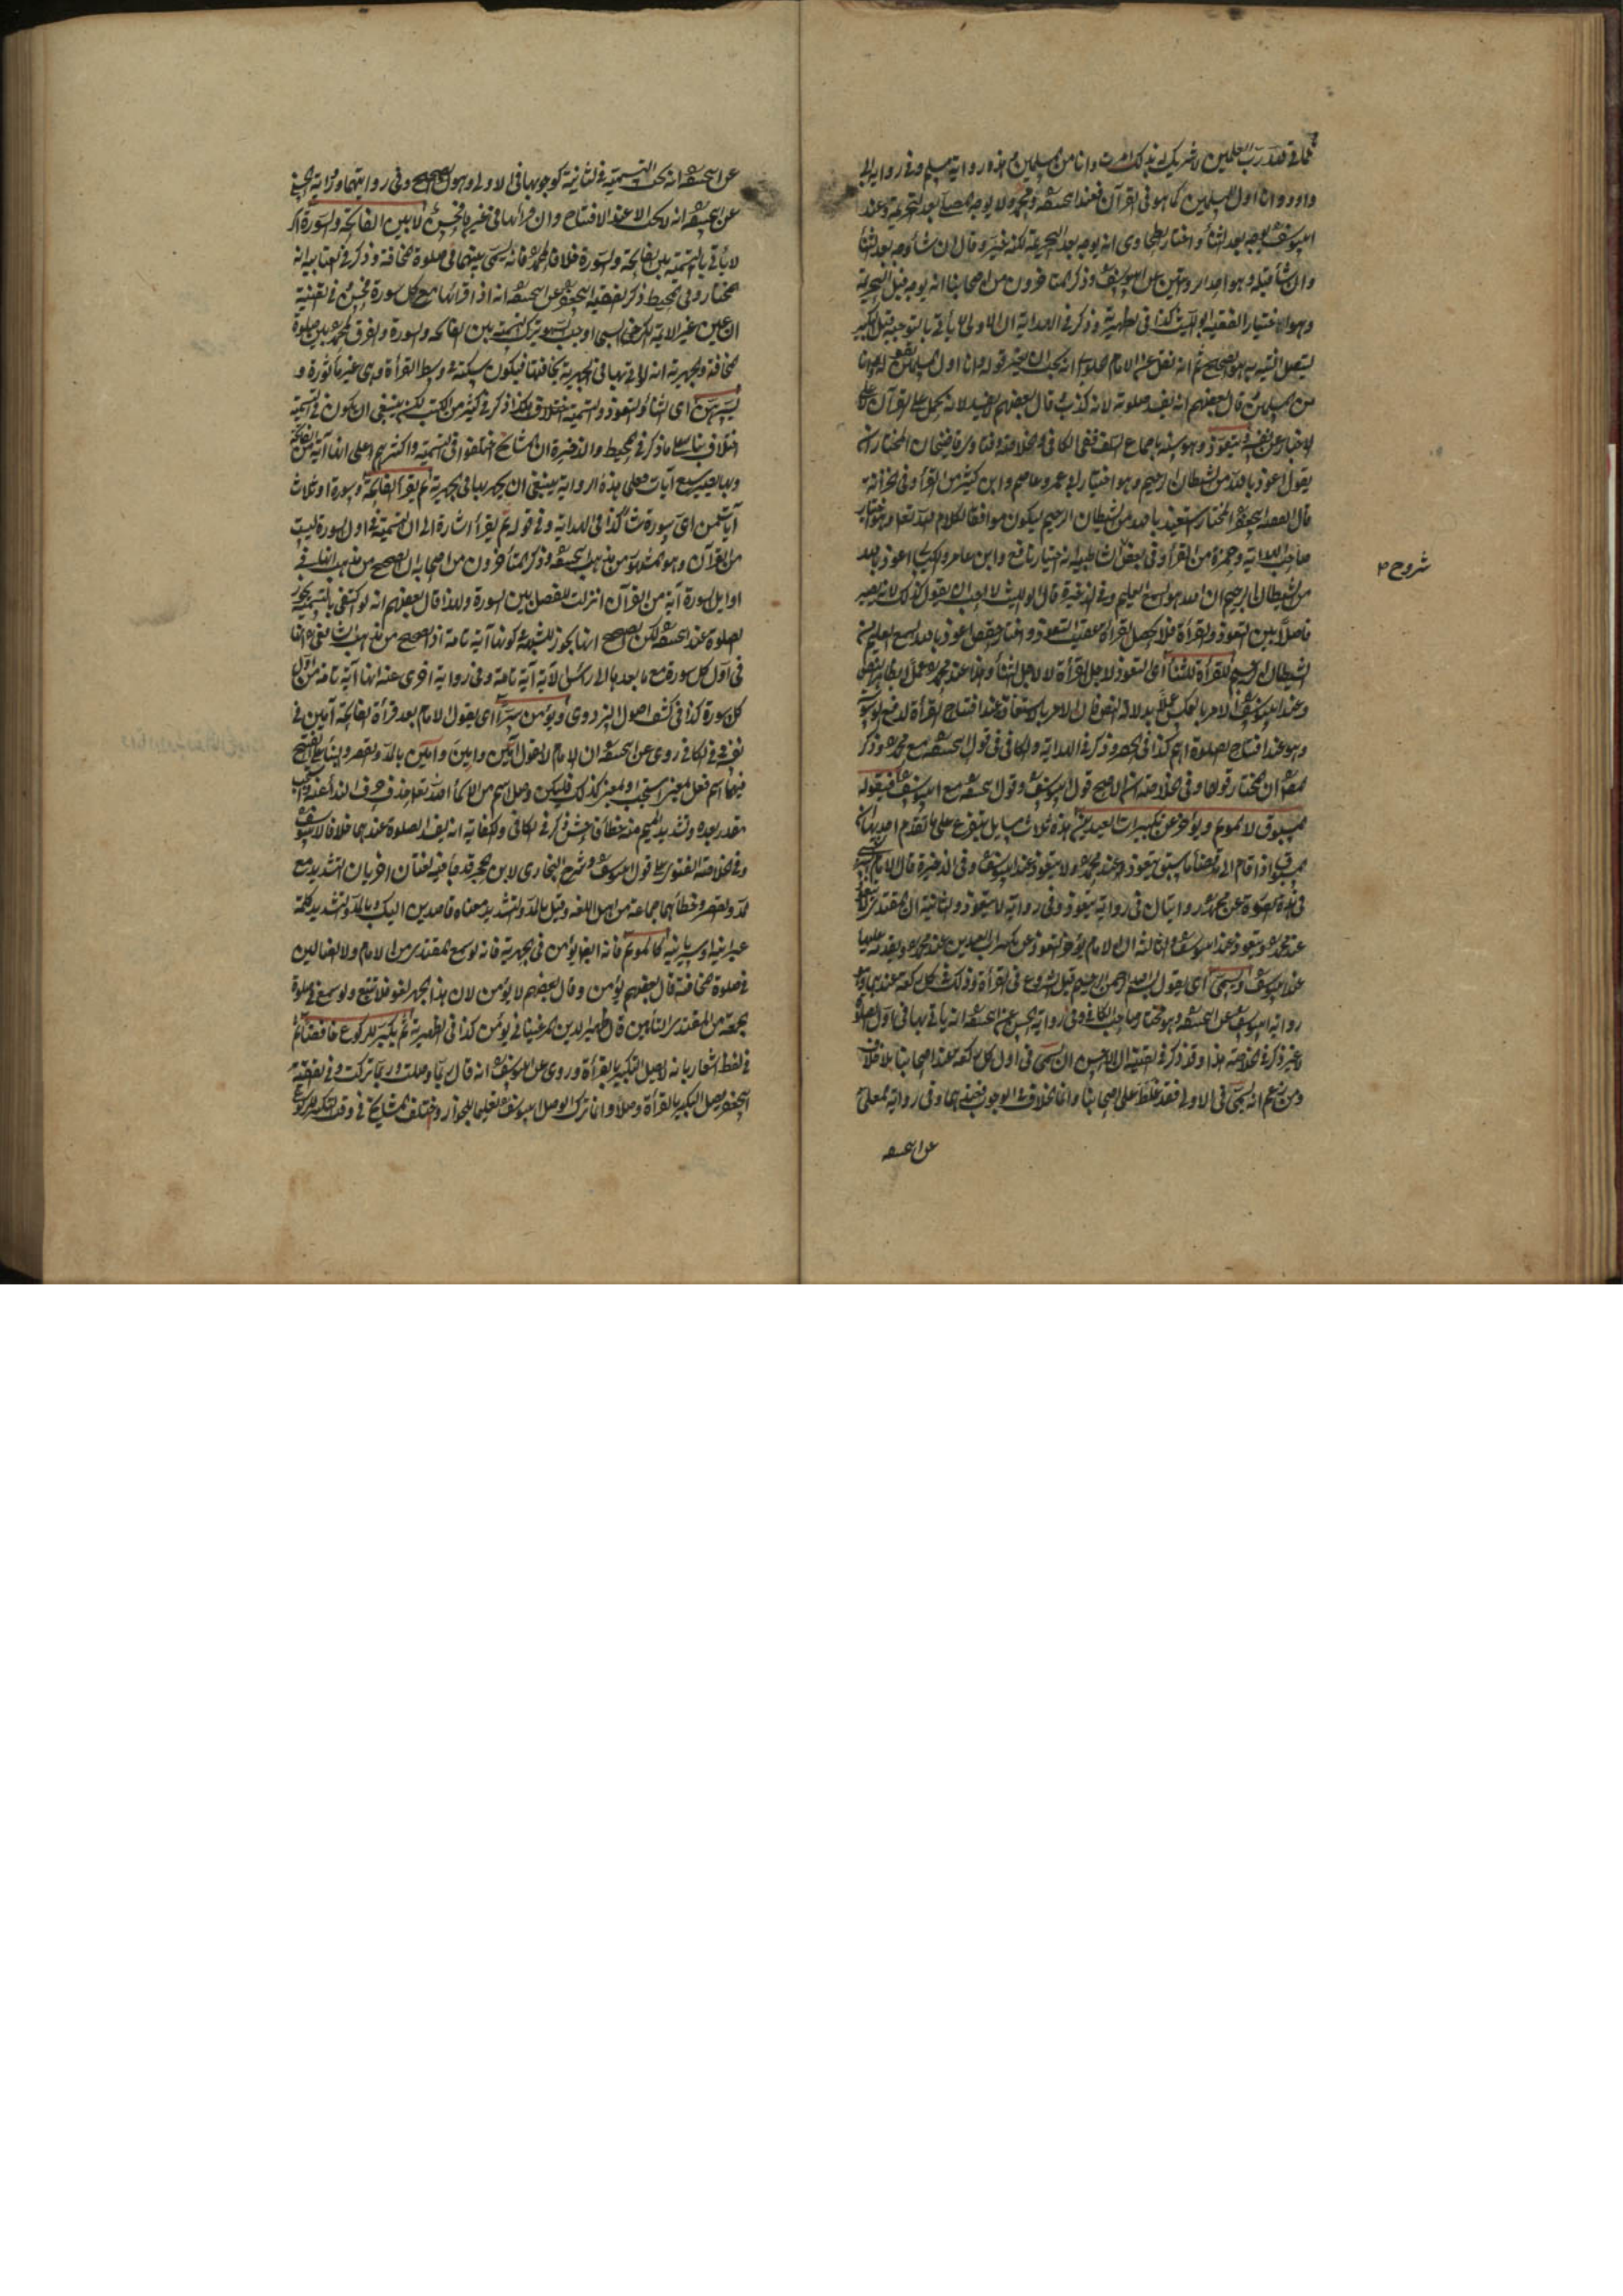 مماتى لله رب العلمين لا شريك له وبذلك امرت وانا من المسلمين هذه رواية مسلم وفى رواية ابى
داود وانا اول المسلمين كما هو فى القرآن فعند ابيحنيفة ومحمد ولا يوجه المصلى بعد التحريمة وعند
ابيوسف يوجه بعد الثنأ واختار الطحاوى انه يوجه بعد التحريمة لكنه خير وقال ان شأ وجه بعد الثنأ
وان شأ قبله وهو احد الروايتين عن ابيوسف وذكر المتأخرون من اصحابنا انه يوجه قبل التحريمة
وهو الاختيار الفقيه ابو الليث كذا فى الظهيرية وذكر فى الهداية ان الاولى ان لا يأتى بالتوجيه قبل التكبير
ليتصل النية به هو الصحيح ثم انه نقل عن الامام انه يجب ان يغير قوله وانا اول المسلمين بقوله وانا
من المسلمين قال بعضهم انه يفسد صلوته لانه كذب وقال بعضهم لا يفسد لانه يحمل على القرآن لا على
الاخبار عن نفسه ويتعوذ وهو سنة باجماع السلف ففى الكافى والخلاصة وفتاوى قاضيخان المختار ان
يقول اعوذ بالله من الشيطان الرجيم وهو اختيار ابى عمرو وعاصم وابن كثير من القرأ وفى الخزانة
قال الفقيه ابيجعفر المختار استعيذ بالله من الشيطان الرجيم ليكون موافقا لكلام الله تعا وهو اختيار
صاحب الهداية وحمزة من القرأ وفى بعض الشاطبية انه اختيار نافع وابن عامر والكسائى اعوذ بالله
من الشيطان الرجيم ان الله هو السميع العليم وفى الذخيرة قال ابو الليث لا يجب ان يقول كذلك لانه يصير
فاصلا بين التعوذ والقرأة فلا يحصل القرأة عقيب التعوذ واختار حفص اعوذ بالله السميع العليم من
الشيطان الرجيم للقرأة لا للثنأ اى التعوذ لاجل القرأة لا لاجل الثنأ وهذا عند محمد عملا بظاهر النص
وعند ابيوسف الامر بالعكس عملا بدلالة النص فان الامر بالاستعاذة عند افتتاح القرأة لدفع الوسوسة
وهو عند افتتاح الصلوة اهم كذا فى الحصر وذكر فى الهداية والكافى قول ابيحنيفة مع محمد وذكر
المص ان المختار قولهما وفى الخلاصة ان الاصح قول ابيوسف وقول ابيحنيفة مع ابيوسف فيقوله
المسبوق لا المؤتم ويؤخر عن تكبيرات العيدين هذه ثلاث مسايل يتفرع على ما تقدم احديها ان
المسبوق اذا قام الى قضأ ما سبق يتعوذ وعند محمد ولا يتعوذ عند ابيوسف وفى الذخيرة قال الامام
فى هذه الصورة عن محمد روايتان فى رواية يتعوذ وفى رواية لا يتعوذ والثانية ان المقتدى لا يتعوذ
عند محمد ويتعوذ عند ابيوسف والثالثة ان الامام يؤخر التعوذ عن تكبيرات العيدين عند محمد ويقدمه عليها
عند ابيوسف ويسمى اى يقول بسم الله الرحمن الرحيم قبل الشروع فى القرأة وذلك فى كل ركعة عندهما وهو
رواية ابيوسف عن ابيحنيفة وهو مختار صاحب الكافى وفى رواية الحسن عن ابيحنيفة انه يأتى بها فى اول الصلوة
وغيره ذكر فى الخلاصة هذا وقد ذكر فى القنية ان الاحسن ان يسمى فى اول كل ركعة عند اصحابنا بلا خلاف
ومن زعم انه يسمى فى الاولى فقد غلط على اصحابنا وانما الخلاف فى الوجوب فعندهما وفى رواية المعلى
عن ابيحنيفة
شروح م
عن ابيحنيفة انه يجب التسمية فى الثانية كوجوبها فى الاولى وهو الصحيح وفى روايتهما ورواية الحسن
عن ابيحنيفة انه لا يجب الا عند الافتتاح وان قرأها فى غيرها فحسن لا بين الفاتحة والسورة اى
لا يأتى بالتسمية بين الفاتحة والسورة خلافا لمحمد فانه يسمى بينهما فى صلوة المخافتة وذكر فى العتابية انه
المختار وفى المحيط ذكر الفقيه ابيجعفر عن ابيحنيفة انه اذا قرأها مع كل سورة فحسن وفى القنية
بين الفاتحة والسورة والفرق لمحمد بين صلوة
المخافتة والجهرية انه لو اتى بها فى الجهرية يخافتها فيكون سكتة فى وسط القرأة وهى غير مأثورة و
يسرهن اى الثنأ والتعوذ والتسمية بلا خلاف هكذا ذكر فى كثير من الكتب لكنه ينبغى ان يكون فى التسمية
اختلاف بنأ على ما ذكر فى المحيط والذخيرة ان المشايخ اختلفوا فى التسمية واكثرهم على انها آية من الفاتحة
وبها يصير سبع آيات فعلى هذه الرواية ينبغى ان يجهر بها فى الجهرية ثم يقرأ الفاتحة وسورة او ثلاث
آيات من اى سورة شأ كذا فى الهداية وفى قوله ثم يقرأ اشارة الى ان التسمية فى اول السورة ليست
من القرآن وهو المشهور من مذهب ابيحنيفة وذكر المتأخرون من اصحابه ان الصحيح من مذهبه انها فى
اوايل السورة آية من القرآن انزلت للفصل بين السورة ولهذا قال بعضهم انه لو اكتفى بالتسمية يجوز
الصلوة عند ابيحنيفة لكن الصحيح انها لا يجوز لشبهة كونها آية تامة اذ الصحيح من مذهب الشافعى انها
فى اول كل سورة مع ما بعدها الى رأس الآية آية تامة وفى رواية اخرى عنه انها آية تامة من اول
كل سورة كذا فى كشف اصول البزدوى ويؤمن سرا اى يقول الامام بعد قرأة الفاتحة آمين فى
نفسه وفى الكافى روى عن ابيحنيفة ان الامام لا يقول آمين وامين وآمين بالمد والقصر وبنأ على الفتح
فيهما اسم فعل
مقدر بعده وتشديد الميم منه خطأ فاحش ذكر فى الكافى والكفاية انه يفسد الصلوة عندهما خلافا لابيوسف
وفى الخلاصة الفتوى على قول ابيوسف وفى شرح البخارى لابن حجر قد جأ فيه لغتان اخريان التشديد مع
المد والقصر وخطأهما جماعة من اهل اللغة وقيل بالمد والتشديد معناه قاصدين اليك وبالمد والتشديد كلمة
عبرانية او سريانية كالمؤتم فانه ايضا يؤمن فى الجهرية فانه لو سمع المقتدى من الامام ولا الضالين
فى صلوة المخافتة قال بعضهم يؤمن وقال بعضهم لا يؤمن لان هذا الجهر لغو فلا تتبع ولو سمع فى صلوة
الجمعة من المقتدى التأمين قال ظهير الدين المرغينانى يؤمن كذا فى الظهيرية ثم يكبر للركوع خافضا ثم
فى لفظ اشعار بانه لا يصل التكبير بالقرأة وروى عن ابيوسف انه قال ربما وصلت وربما تركت وفى الفقيه
ابيجعفر يصل التكبير بالقرأة وصلا وانما ترك الوصل ابيوسف تعليما للجواز واختلف المشايخ فى وقت التكبير للركوع